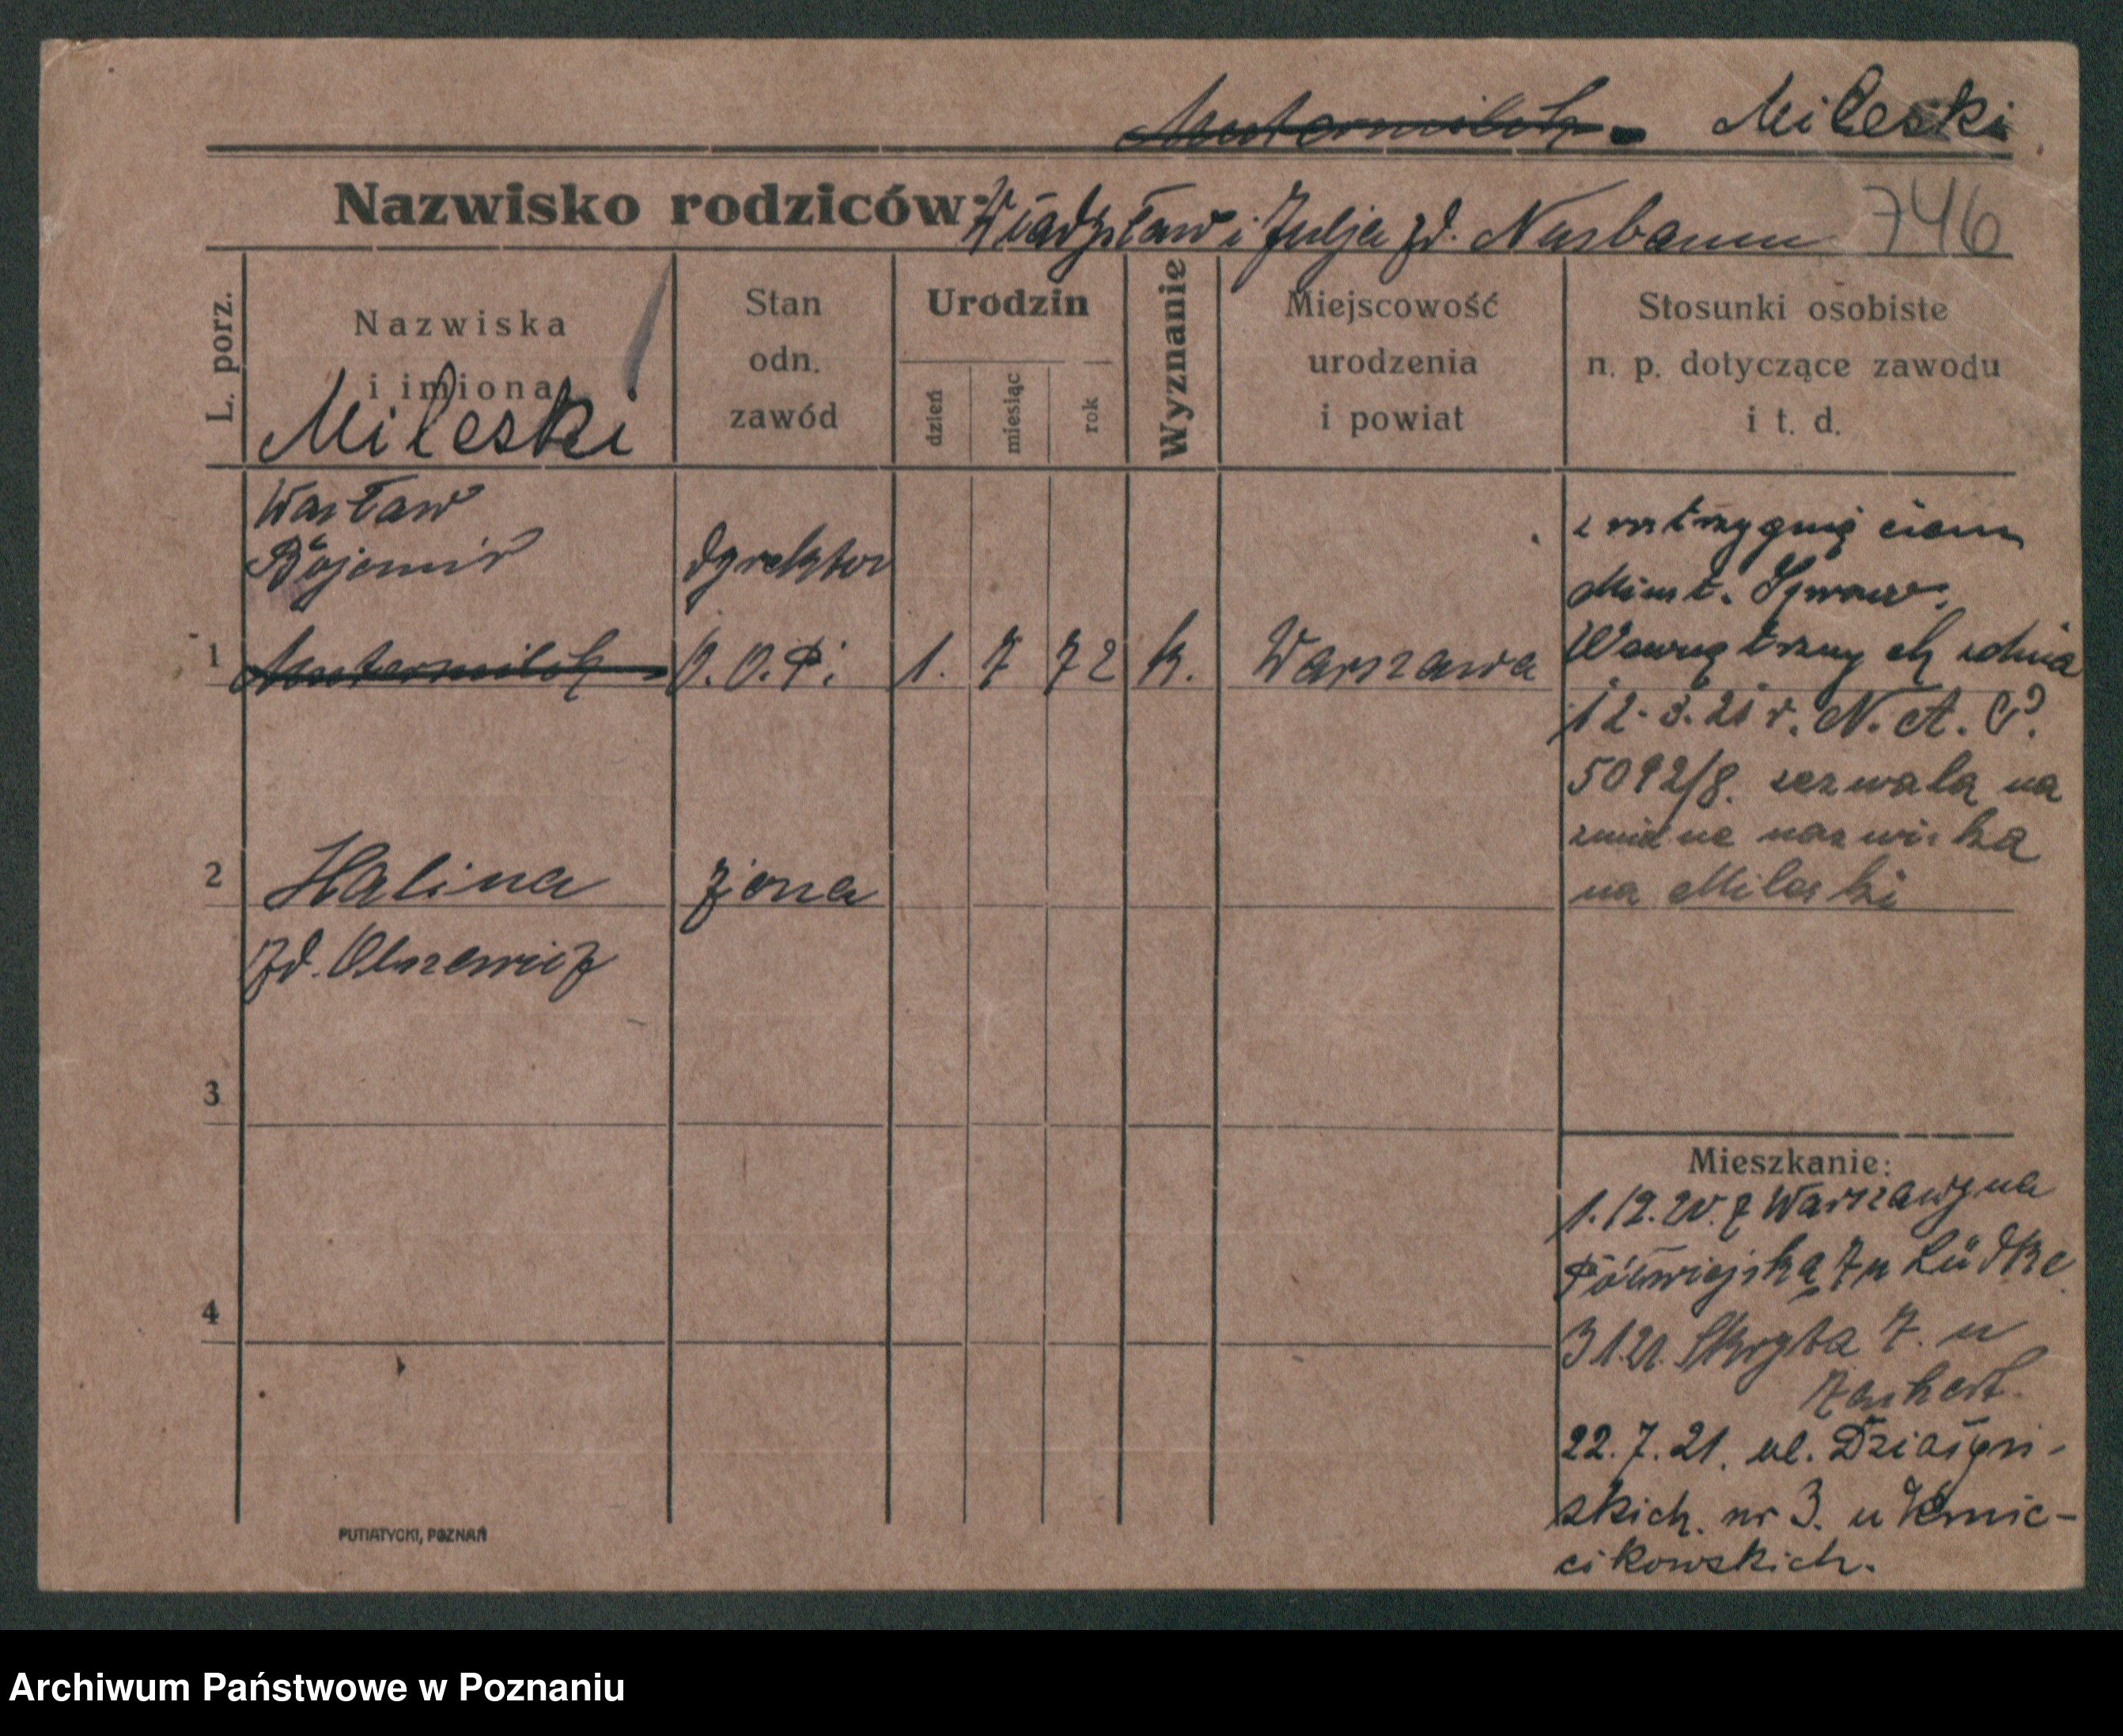 Mutermilch. Mileski
Nazwisko rodziców: Władysław i Julja zd. Nusbaum 746
L. porz.
Nazwiska
i imiona
Mileski
Stan
odn.
zawód
Urodzin
dzień
miesiąc
rok
Wyznanie
Miejscowość
urodzenia
i powiat
Stosunki osobiste
n. p. dotyczące zawodu
i t. d.
Wacław
Bojomir dyrektor
1 Mutermilch 1. 7 72 k. Warszawa
Minst. Spraw.
Wewnętrznych zdnia
12. 3. 21 r. N. A. P.
5092/8. zezwala na
nazwiska
na Mileski
2 Halina żona
zd. Olszewicz
3
4
Mieszkanie:
1.12.20. z Warszawy na
Półwiejską 7 u Lüdtke
3 1.21. Skryta 7. u
22. 7. 21. ul. Działyń-
skich. nr 3. u Kmie-
cikowskich.
PUTIATYCKI, POZNAŃ
Archiwum Państwowe w Poznaniu